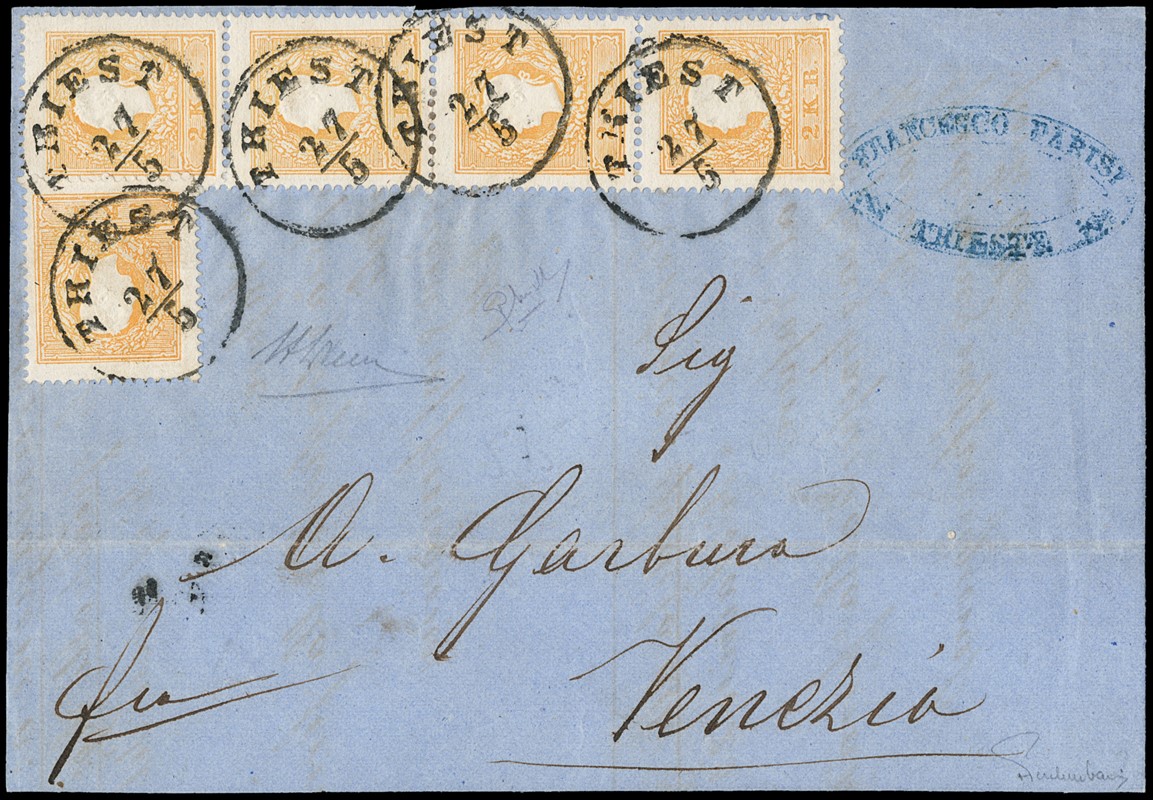 TRIEST
27/5
TRIEST
27/5
TRIEST
27/5
TRIEST
27/5
2 KR.
FRANCESCO PARISI
TRIESTE
TRIEST
27/5
Sig
A. Garbura
Venezia